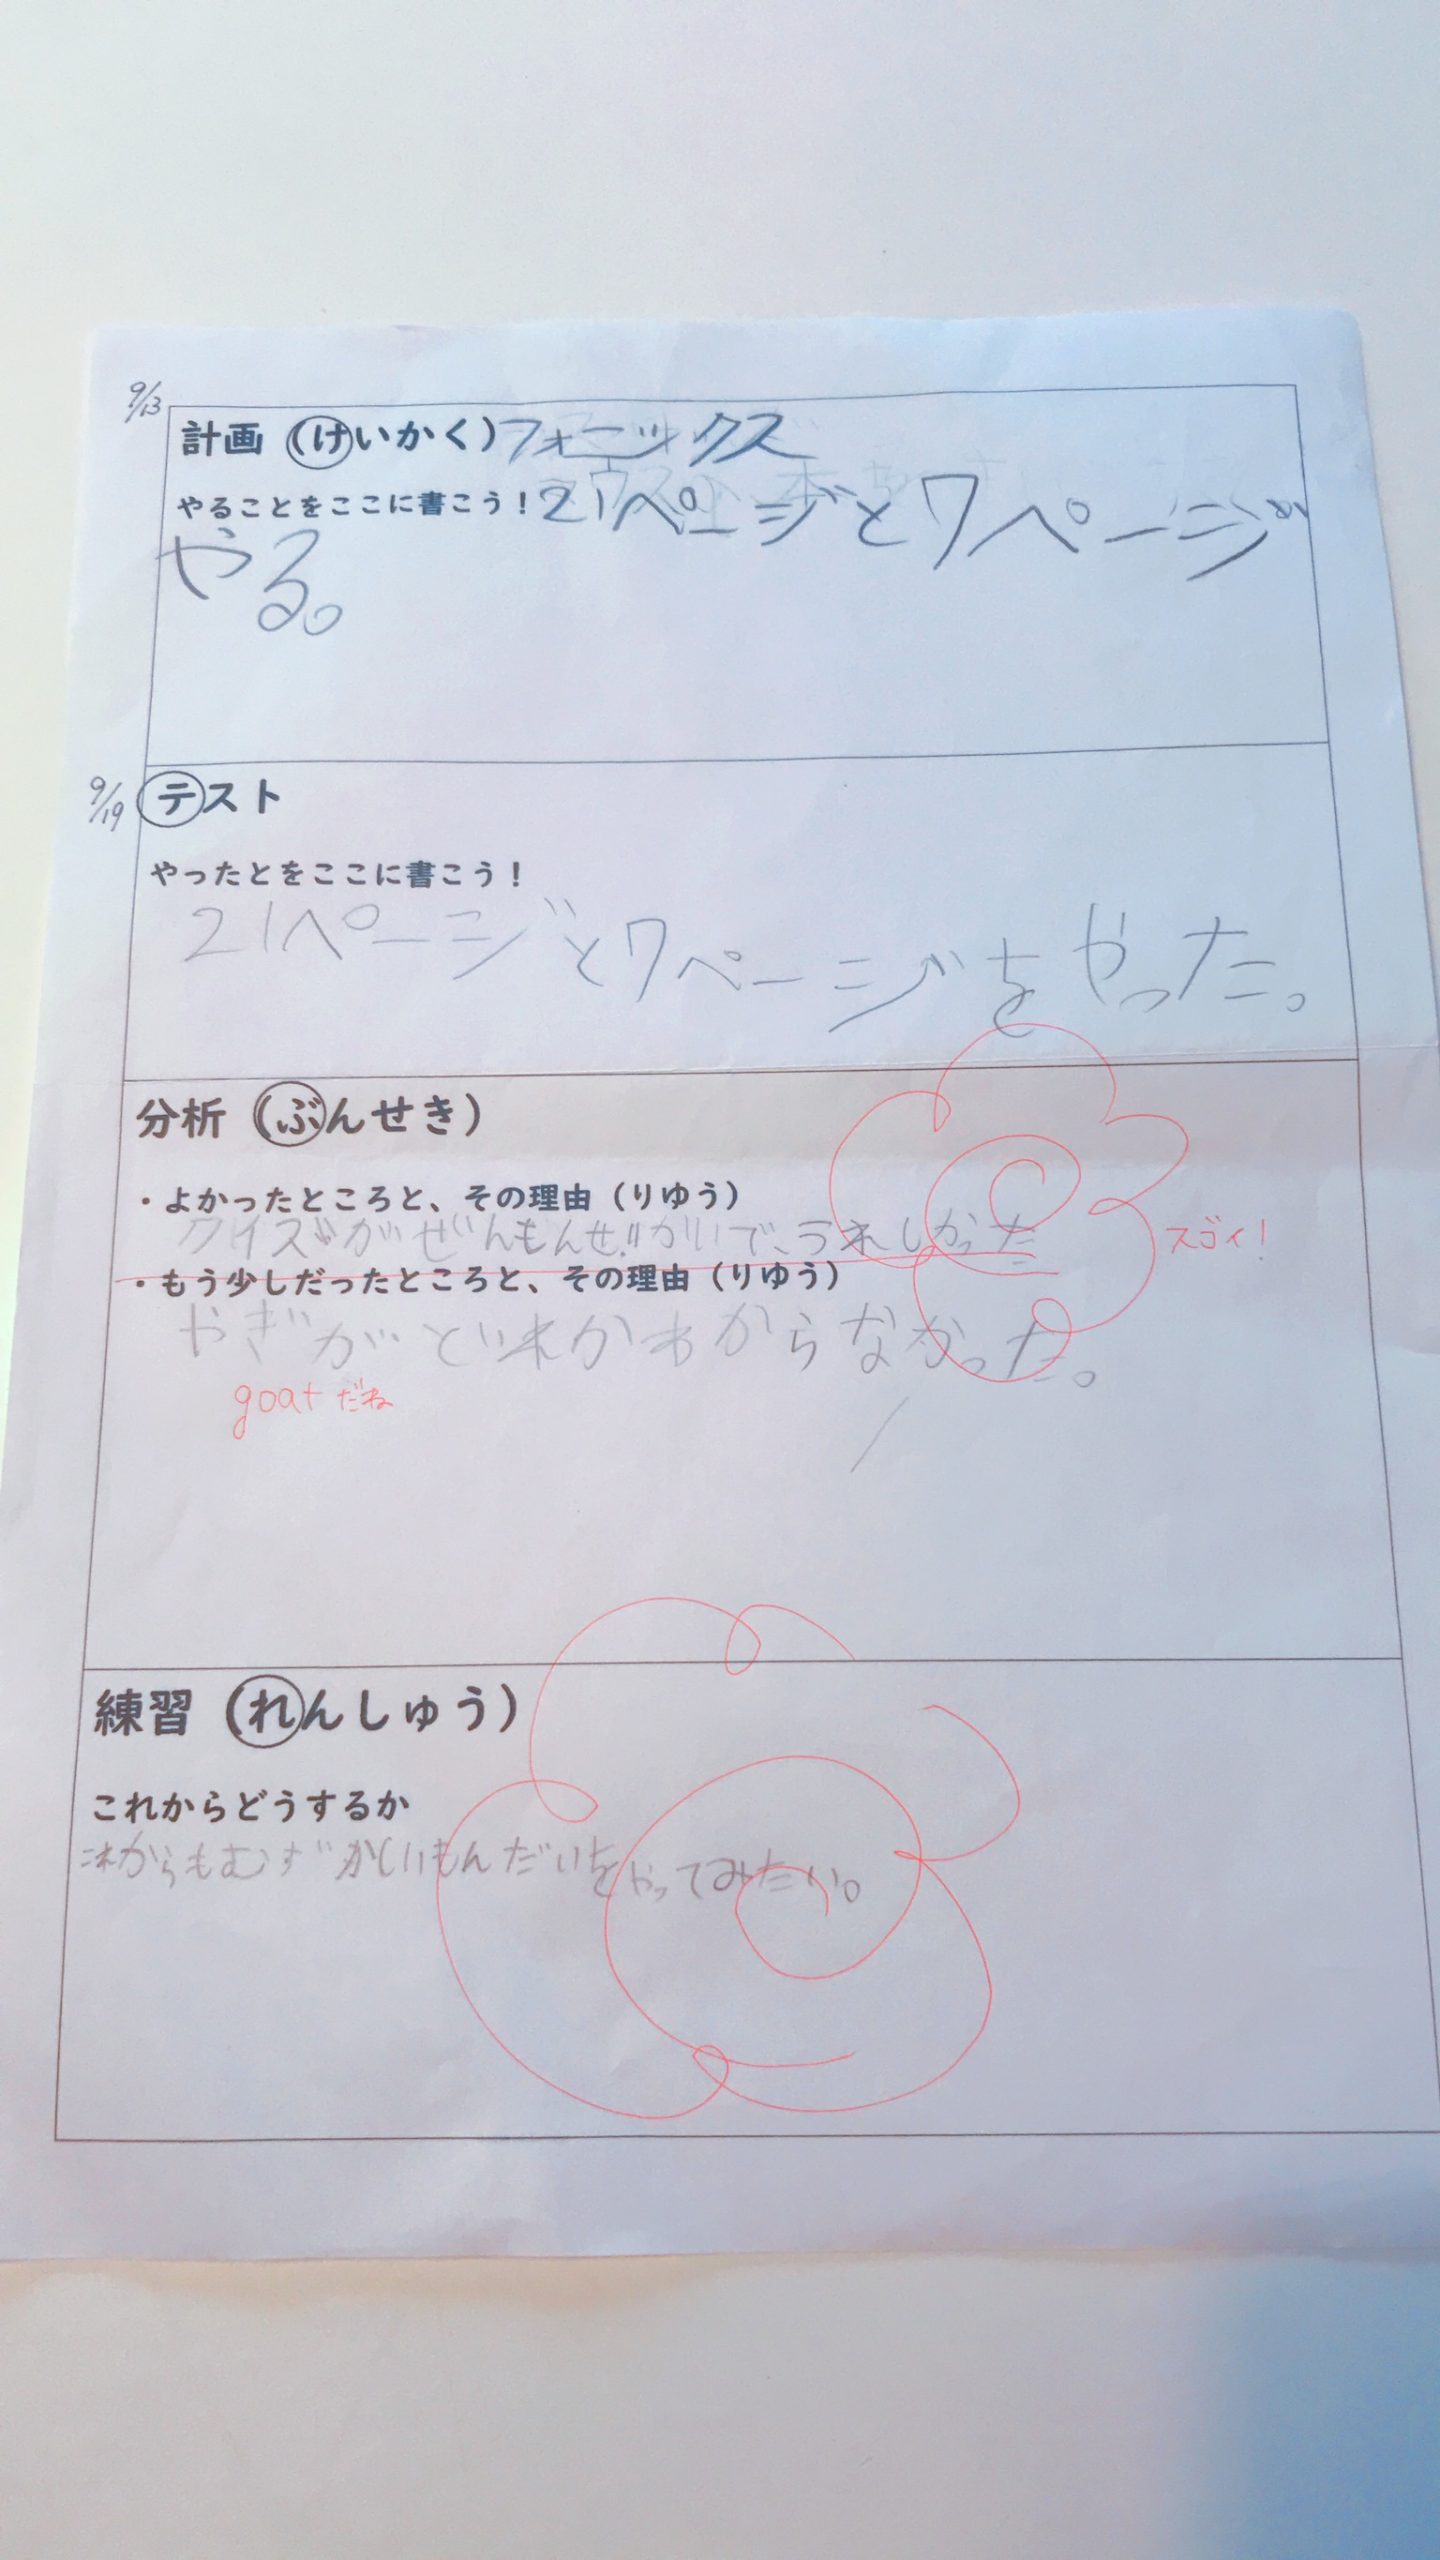 9/13
計画（けいかく）フォニックス
やることをここに書こう！21ページと7ページ
やる。
9/19
テスト
やったとをここに書こう！
21ページと7ページをやった。
分析（ぶんせき）
・よかったところと、その理由（りゆう）
クイズがぜんもんせいかいで、うれしかった
スゴイ！
・もう少しだったところと、その理由（りゆう）
やぎがどれかわからなかった。
goatだね
練習（れんしゅう）
これからどうするか
これからもむずかしいもんだいをやってみたい。